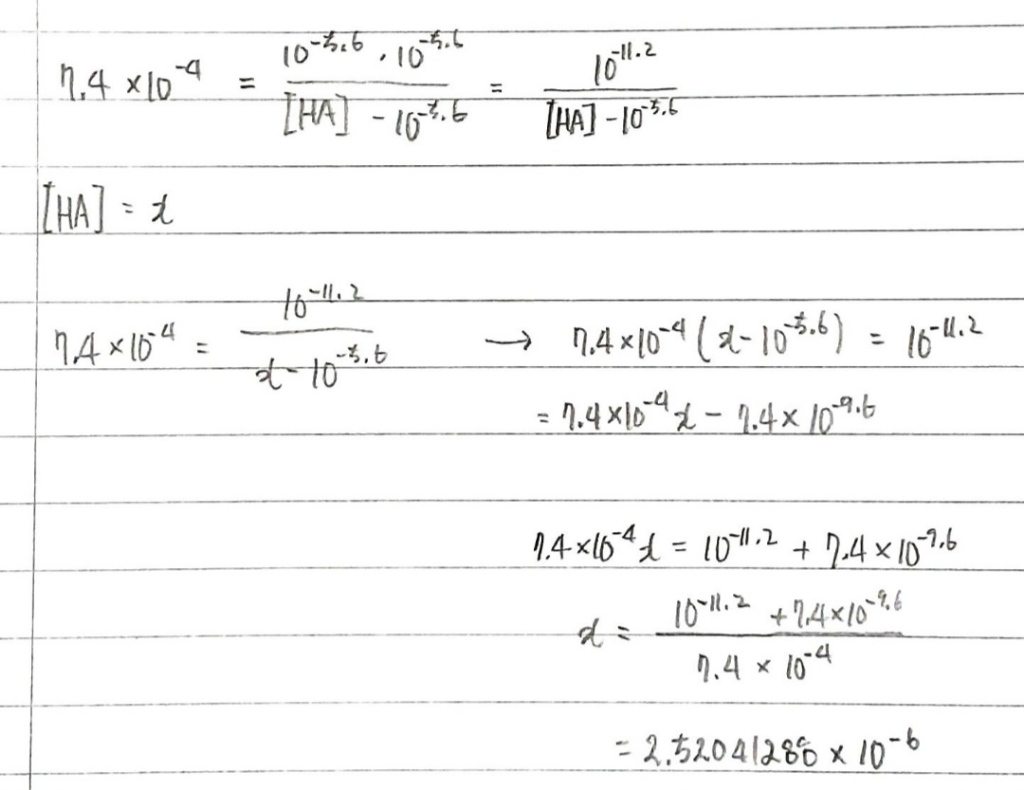 7.4 × 10⁻⁴ = (10⁻⁵·⁶ · 10⁻⁵·⁶) / ([HA] - 10⁻⁵·⁶) = 10⁻¹¹·² / ([HA] - 10⁻⁵·⁶)
[HA] = x
7.4 × 10⁻⁴ = 10⁻¹¹·² / (x - 10⁻⁵·⁶) → 7.4 × 10⁻⁴ (x - 10⁻⁵·⁶) = 10⁻¹¹·²
= 7.4 × 10⁻⁴ x - 7.4 × 10⁻⁹·⁶
7.4 × 10⁻⁴ x = 10⁻¹¹·² + 7.4 × 10⁻⁹·⁶
x = (10⁻¹¹·² + 7.4 × 10⁻⁹·⁶) / (7.4 × 10⁻⁴)
= 2.52041288 × 10⁻⁶